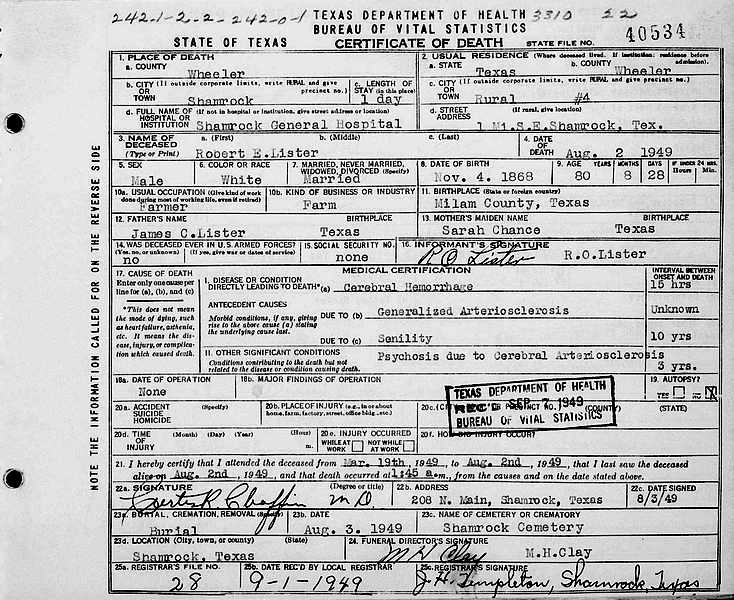 242-1-2-2-242-0-1 TEXAS DEPARTMENT OF HEALTH 3310 22
BUREAU OF VITAL STATISTICS 40534
STATE OF TEXAS CERTIFICATE OF DEATH STATE FILE NO.
1. PLACE OF DEATH
a. COUNTY
Wheeler
2. USUAL RESIDENCE (Where deceased lived. If institution: residence before admission).
a. STATE b. COUNTY
Texas Wheeler
b. CITY (If outside corporate limits, write RURAL and give
OR precinct no.)
TOWN
Shamrock
c. LENGTH OF
STAY (in this place)
1 day
c. CITY (If outside corporate limits, write RURAL and give precinct no.)
OR
TOWN
Rural #4
d. FULL NAME OF (If not in hospital or institution, give street address or location)
HOSPITAL OR
INSTITUTION Shamrock General Hospital
d. STREET (If rural, give location)
ADDRESS
1 Mi.S.E.Shamrock, Tex.
3. NAME OF a. (First) b. (Middle) c. (Last)
DECEASED
(Type or Print) Robert E.Lister
4. DATE
OF
DEATH Aug. 2 1949
5. SEX
Male
6. COLOR OR RACE
White
7. MARRIED, NEVER MARRIED,
WIDOWED, DIVORCED (Specify)
Married
8. DATE OF BIRTH
Nov. 4. 1868
9. AGE YEARS MONTHS DAYS IF UNDER 24 HRS.
Hours Min.
80 8 28
10a. USUAL OCCUPATION (Give kind of work
done during most of working life, even if retired)
Farmer
10b. KIND OF BUSINESS OR INDUSTRY
Farm
11. BIRTHPLACE (State or foreign country)
Milam County, Texas
12. FATHER'S NAME BIRTHPLACE
James C.Lister Texas
13. MOTHER'S MAIDEN NAME BIRTHPLACE
Sarah Chance Texas
14. WAS DECEASED EVER IN U.S. ARMED FORCES?
(Yes, no, or unknown) (If yes, give war or dates of service)
no
15. SOCIAL SECURITY NO.
none
16. INFORMANT'S SIGNATURE
R O Lister R.O.Lister
17. CAUSE OF DEATH
Enter only one cause per
line for (a), (b), and (c)
*This does not mean
the mode of dying, such
as heart failure, asthenia,
etc. It means the dis-
ease, injury, or compli-
cation which caused death.
MEDICAL CERTIFICATION
INTERVAL BETWEEN
ONSET AND DEATH
I. DISEASE OR CONDITION
DIRECTLY LEADING TO DEATH*(a) Cerebral Hemorrhage 15 hrs
ANTECEDENT CAUSES
Morbid conditions, if any, giving
rise to the above cause (a) stating
the underlying cause last.
DUE TO (b) Generalized Arteriosclerosis Unknown
DUE TO (c) Senility 10 yrs
II. OTHER SIGNIFICANT CONDITIONS
Conditions contributing to the death but not
related to the disease or condition causing death.
Psychosis due to Cerebral Arteriosclerosis
3 yrs.
18a. DATE OF OPERATION
None
18b. MAJOR FINDINGS OF OPERATION
19. AUTOPSY?
YES NO X
20a. ACCIDENT (Specify)
SUICIDE
HOMICIDE
20b. PLACE OF INJURY (e.g., in or about
home, farm, factory, street, office bldg., etc.)
20c. (COUNTY) (STATE)
TEXAS DEPARTMENT OF HEALTH
REC'D SEP 7 1949
BUREAU OF VITAL STATISTICS
20d. TIME (Month) (Day) (Year) (Hour)
OF
INJURY m.
20e. INJURY OCCURRED
WHILE AT WORK NOT WHILE AT WORK
20f. HOW DID INJURY OCCUR?
21. I hereby certify that I attended the deceased from Mar. 19th, 1949, to Aug. 2nd, 1949, that I last saw the deceased
alive on Aug. 2nd, 1949, and that death occurred at 1:45 a.m., from the causes and on the date stated above.
22a. SIGNATURE (Degree or title)
Chaffin M D
22b. ADDRESS
208 N. Main, Shamrock, Texas
22c. DATE SIGNED
8/3/49
23a. BURIAL, CREMATION, REMOVAL (Specify)
Burial
23b. DATE
Aug. 3. 1949
23c. NAME OF CEMETERY OR CREMATORY
Shamrock Cemetery
23d. LOCATION (City, town, or county) (State)
Shamrock, Texas
24. FUNERAL DIRECTOR'S SIGNATURE
M H Clay M.H.Clay
25a. REGISTRAR'S FILE NO.
28
25b. DATE REC'D BY LOCAL REGISTRAR
9-1-1949
25c. REGISTRAR'S SIGNATURE
J. H. Templeton, Shamrock, Texas
NOTE THE INFORMATION CALLED FOR ON THE REVERSE SIDE